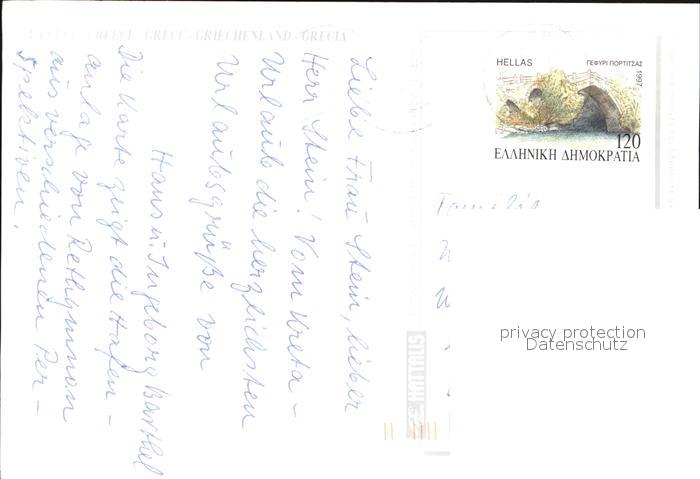 GREECE · GRECE · GRIECHENLAND · GRECIA
Liebe Frau Stein, lieber
Herr Stein! Vom Kreta-
Urlaub die herzlichsten
Urlaubsgrüße von
Hans u. Ingeborg Barthel
Die Karte zeigt die Hafen-
anlage von Rethymnon
aus verschiedenen Per-
spektiven.
HELLAS
ΓΕΦΥΡΙ ΠΟΡΤΙΤΣΑΣ
1997
120
ΕΛΛΗΝΙΚΗ ΔΗΜΟΚΡΑΤΙΑ
Familie
HAITALIS
privacy protection
Datenschutz